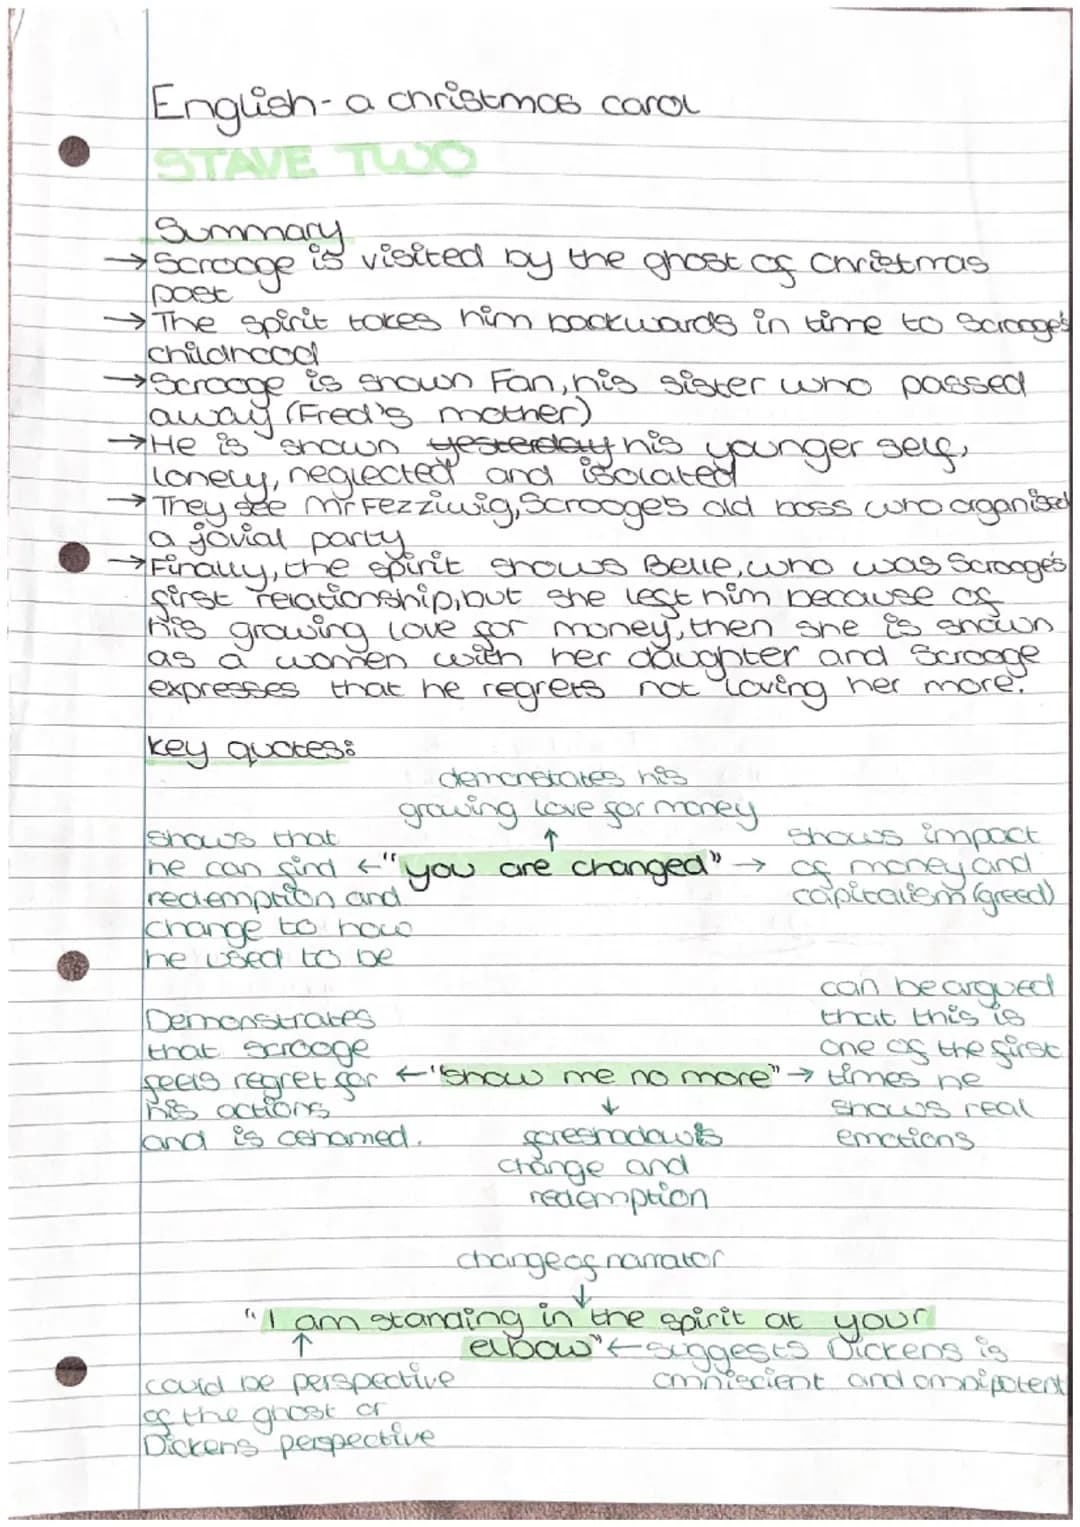 English - a christmas carol
STAVE TWO
Summary
→ Scrooge is visited by the ghost of Christmas
past
→ The spirit takes him backwards in time to Scrooge's
childhood
→ Scrooge is shown Fan, his sister who passed
away (Fred's mother)
→ He is shown yesterday his younger self,
lonely, neglected and isolated
→ They see Mr Fezziwig, Scrooge's old boss who organised
a jovial party
→ Finally, the spirit shows Belle, who was Scrooge's
first relationship, but she left him because of
his growing love for money, then she is shown
as a women with her daughter and Scrooge
expresses that he regrets not loving her more.
key quotes:
demonstates his
growing love for money
↑
shows that
he can find ← "you are changed" →
redemption and
change to how
he used to be
shows impact
of money and
capitalism (greed)
Demonstrates
that scrooge
feels regret for ← "show me no more" →
his actions
and is ashamed.
can be argued
that this is
one of the first
times he
shows real
emotions
↓
foreshadows
change and
redemption
change of narrator
↓
"I am standing in the spirit at your
elbow" ← suggests Dickens is
omniscient and omnipotent
↑
could be perspective
of the ghost or
Dickens perspective